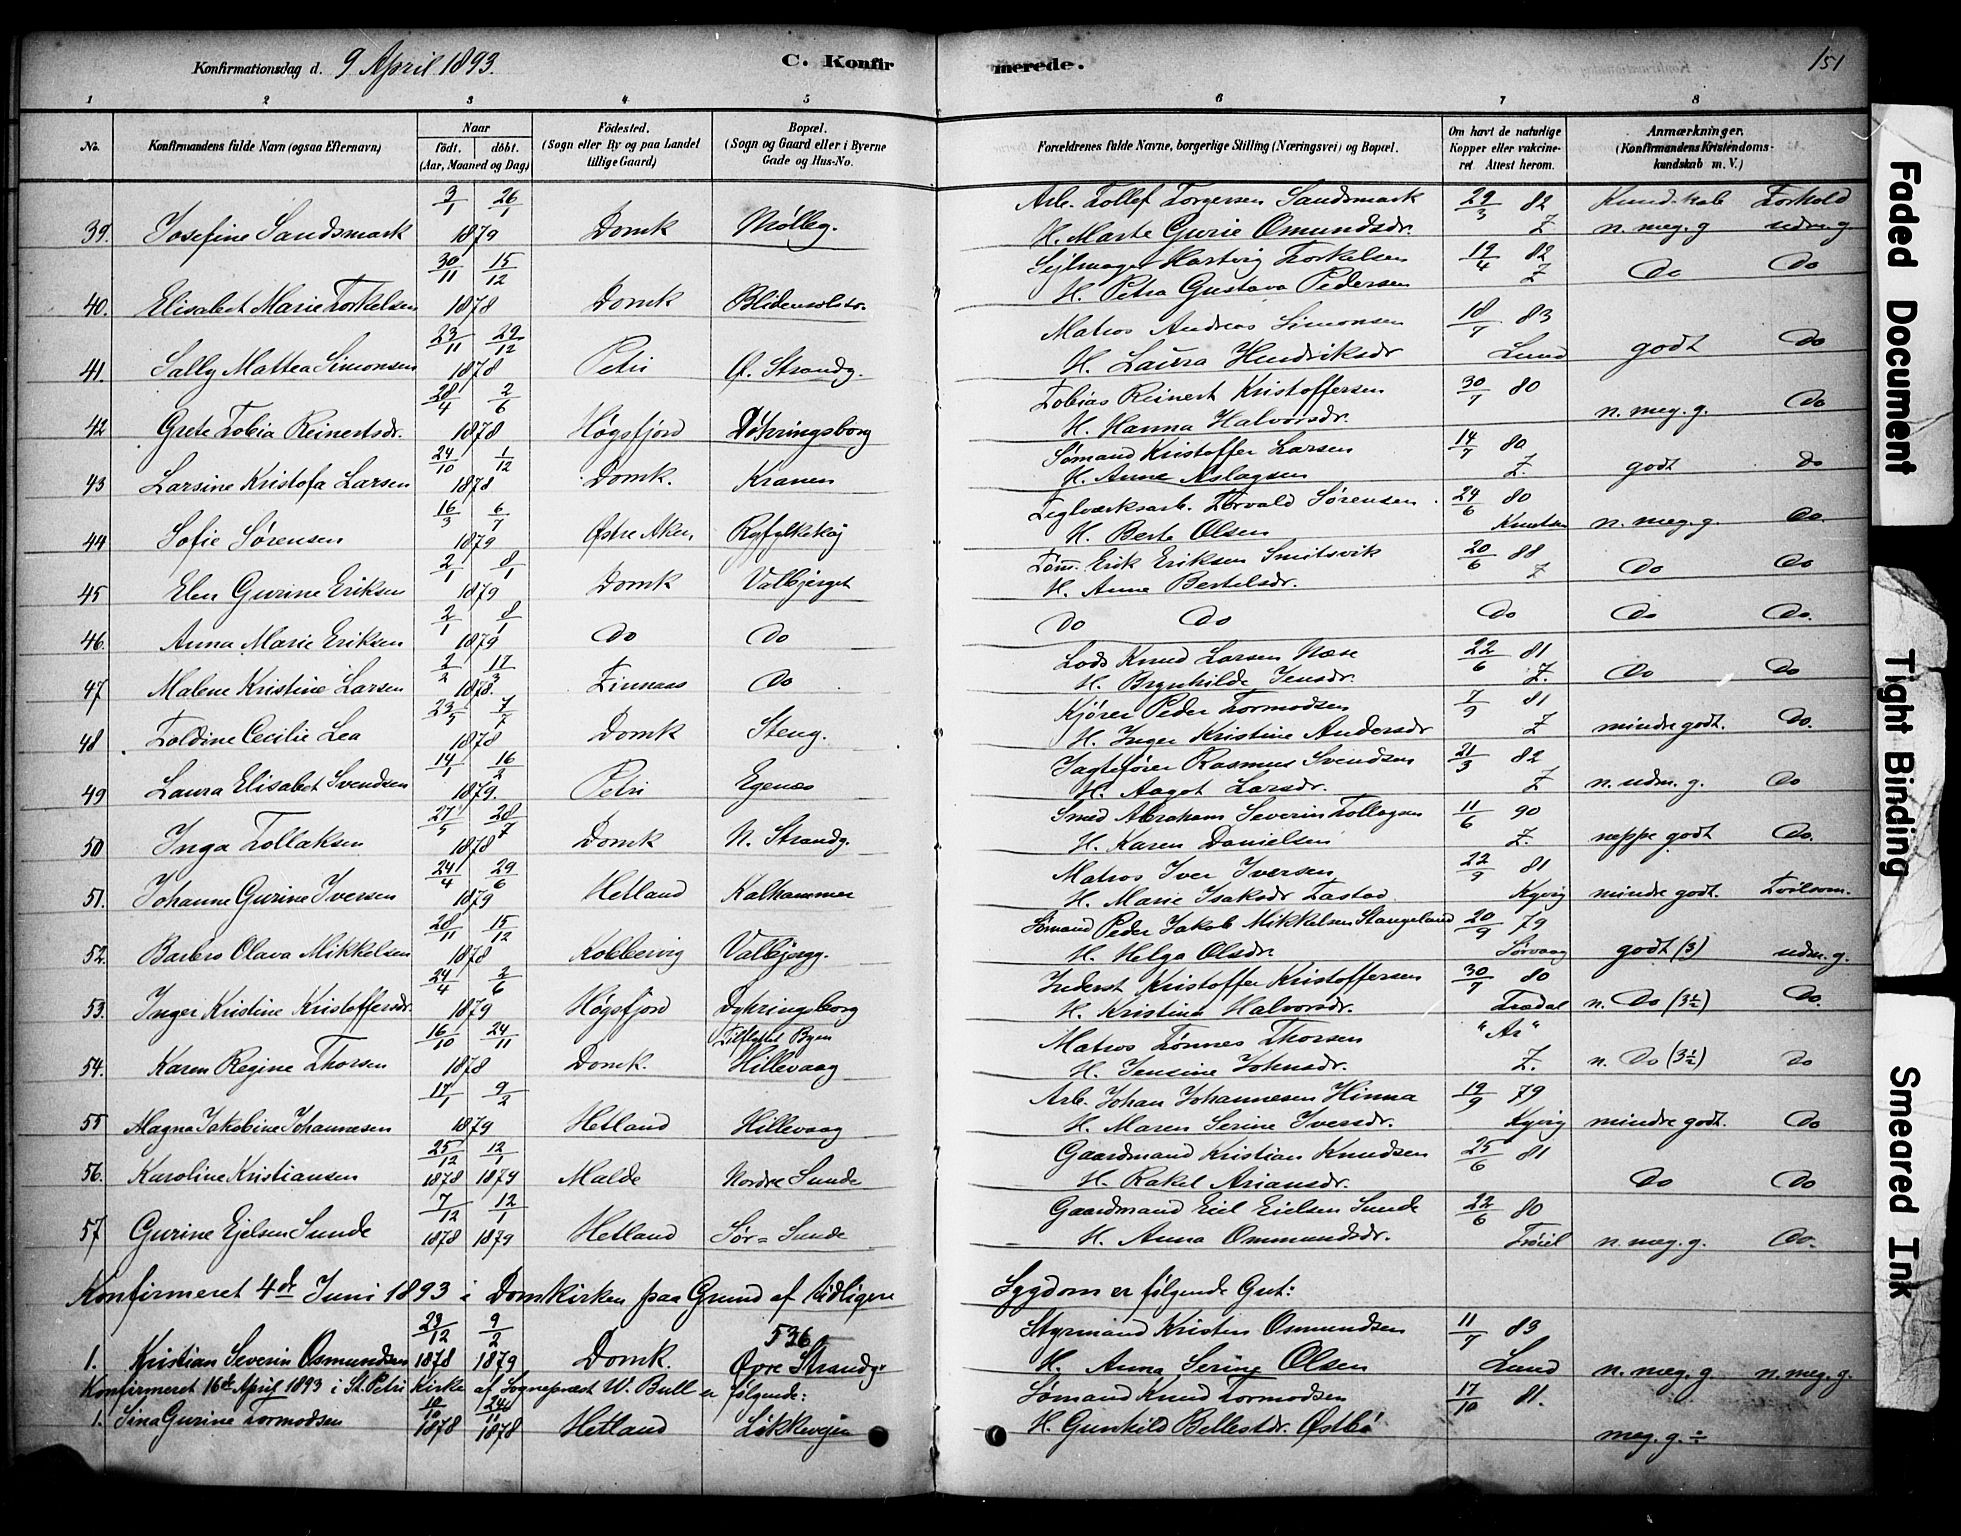 Konfirmationsdag d. 9 April 1893. C. Konfirmerede. 151
1 2 3 4 5 6 7 8
No. Konfirmandens fulde Navn (ogsaa Efternavn) Naar født. døbt. (Aar, Maaned og Dag) Fødested. (Sogn eller By og paa Landet tillige Gaard) Bopæl. (Sogn og Gaard eller i Byerne Gade og Hus-No. Forældrenes fulde Navne, borgerlige Stilling (Næringsvei) og Bopæl. Om havt de naturlige Kopper eller vakcineret Attest herom. Anmærkninger. (Konfirmandens Kristendomskundskab m. V.)
3/1 26/1 Arb. Tollef Torgersen Sandsmark 29/3 82 Kundskab Forhold
39. Josefine Sandsmark 1879 Domk Mølleg. H. Marte Gurie Omundsdr. Z n. meg. g udm. g.
30/11 15/12 Sejlmager Hartvig Torkelsen 19/4 82
40. Elisabet Marie Torkelsen 1878 Domk Blidensolstr. H. Petra Gustava Pedersen Z Do Do
23/11 29/12 Matros Andreas Simonsen 18/7 83
41. Sally Mattea Simonsen 1878 Petri Ø. Strandg. H. Laura Hendriksdr Lund godt Do
28/4 2/6 Tobias Reinert Kristoffersen 30/7 80
42 Grete Tobia Reinertsdr. 1878 Høgsfjord Døkringsborg H. Hanna Halvorsdr. n. meg. g. Do
24/10 1/12 Sømand Kristoffer Larsen 14/7 80
43 Larsine Kristofa Larsen 1878 Domk. Kranen H. Anne Aslagsen Z. godt do
16/3 6/7 Teglværksarb. Torvald Sørensen 24/6 80
44 Sofie Sørensen 1879 Østre Aker, Ryfylkekaj H. Berte Olsen Knutsen n. meg. g. Do.
2/1 8/1 Tøm. Erik Eriksen Smitsvik 20/6 88
45 Elen Gurine Eriksen 1879 Domk Valbjerget H. Anna Bertelsdr. Z Do Do
2/1 8/1
46. Anna Marie Eriksen 1879 Do Do Do Do Do Do Do.
2/2 17/3 Lods Knud Larsen Næse 22/6 81
47 Malene Kristine Larsen 1878. Finnaas Do H. Brynhilde Jensdr. Z. Do Do
23/5 7/7 Kjører Peder Tormodsen 7/9 81
48 Toldine Cecilie Lea 1878 Domk Steng. H. Inger Kristine Andersdr Z mindre godt. Do.
14/1 16/2 Jagtefører Rasmus Svendsen 21/3 82
49 Laura Elisabet Svendsen 1879. Petri Egenæs H. Aagot Larsdr. Z n. udm. g. Do
27/5 28/7 Smed Abraham Severin Tollagsen 11/6 90
50 Inga Tollaksen 1878 Domk N. Strandg. H. Karen Danielsen Z. neppe godt Do.
24/4 29/6 Matros Iver Iversen 22/9 81
51. Johanne Gurine Iversen 1879 Hetland Kalhammer H. Marie Isaksdr Tastad Kyvig mindre godt. Tvilsom.
28/11 15/12 Sømand Peder Jakob Mikkelsen Stangeland 20/9 79
52. Barbro Olava Mikkelsen 1878 Kobbervig Valbjerg. H. Helga Olsdr Sørvaag godt (3) udm. g.
24/4 2/6 Inderst Kristoffer Kristoffersen 30/7 80
53. Inger Kristine Kristoffersdr. 1879 Høgsfjord Dykringsborg H. Kristina Halvorsdr. Tradal n. Do (3½) Do.
16/10 24/11 Tilflyttet Byen Matros Tønnes Thorsen "Ar"
54. Karen Regine Thorsen 1878 Domk. Hillevaag H. Jensine Johnsdr. Z. n. Do (3½) do
17/1 9/2 Arb. Johan Johannesen Hinna 19/9 79
55 Magna Jakobine Johannesen 1879 Hetland Hillevaag H. Maren Serine Iversdr. Kyvig mindre godt. Do
25/12 12/1 Gaardmand Kristian Knudsen 25/6 81
56. Karoline Kristiansen 1878 1879 Malde Nordre Sunde H. Rakel Ariansdr. Do Do
7/12 12/1 Gaardmand Eiel Eielsen Sunde 22/6 80
57 Gurine Ejelsen Sunde 1878 1879 Hetland Sør= Sunde H. Anna Ommundsdr. n. meg. g. Do.
Konfirmeret 4de Juni 1893 i Domkirken paa Grund af tidligere Sygdom er følgende Gut:
29/12 9/2 536 Styrmand Kristen Osmundsen 11/7 83
1. Kristian Severin Osmundsen 1878 1879 Domk. Øvre Strandg. H. Anna Serine Olsen Lund n. meg. g n. meg. g.
Konfirmeret 16de April 1893 i St. Petri Kirke af Sognepræst W. Bull er følgende: Sømand Knud Tormodsen 17/10 81.
10/10 24/11
1. Sina Gurine Tormodsen 1878 1878 Hetland Løkkevejen H. Gunhild Bellestdr. Østbø meg. g. ÷
Faded Document
Tight Binding
Smeared Ink